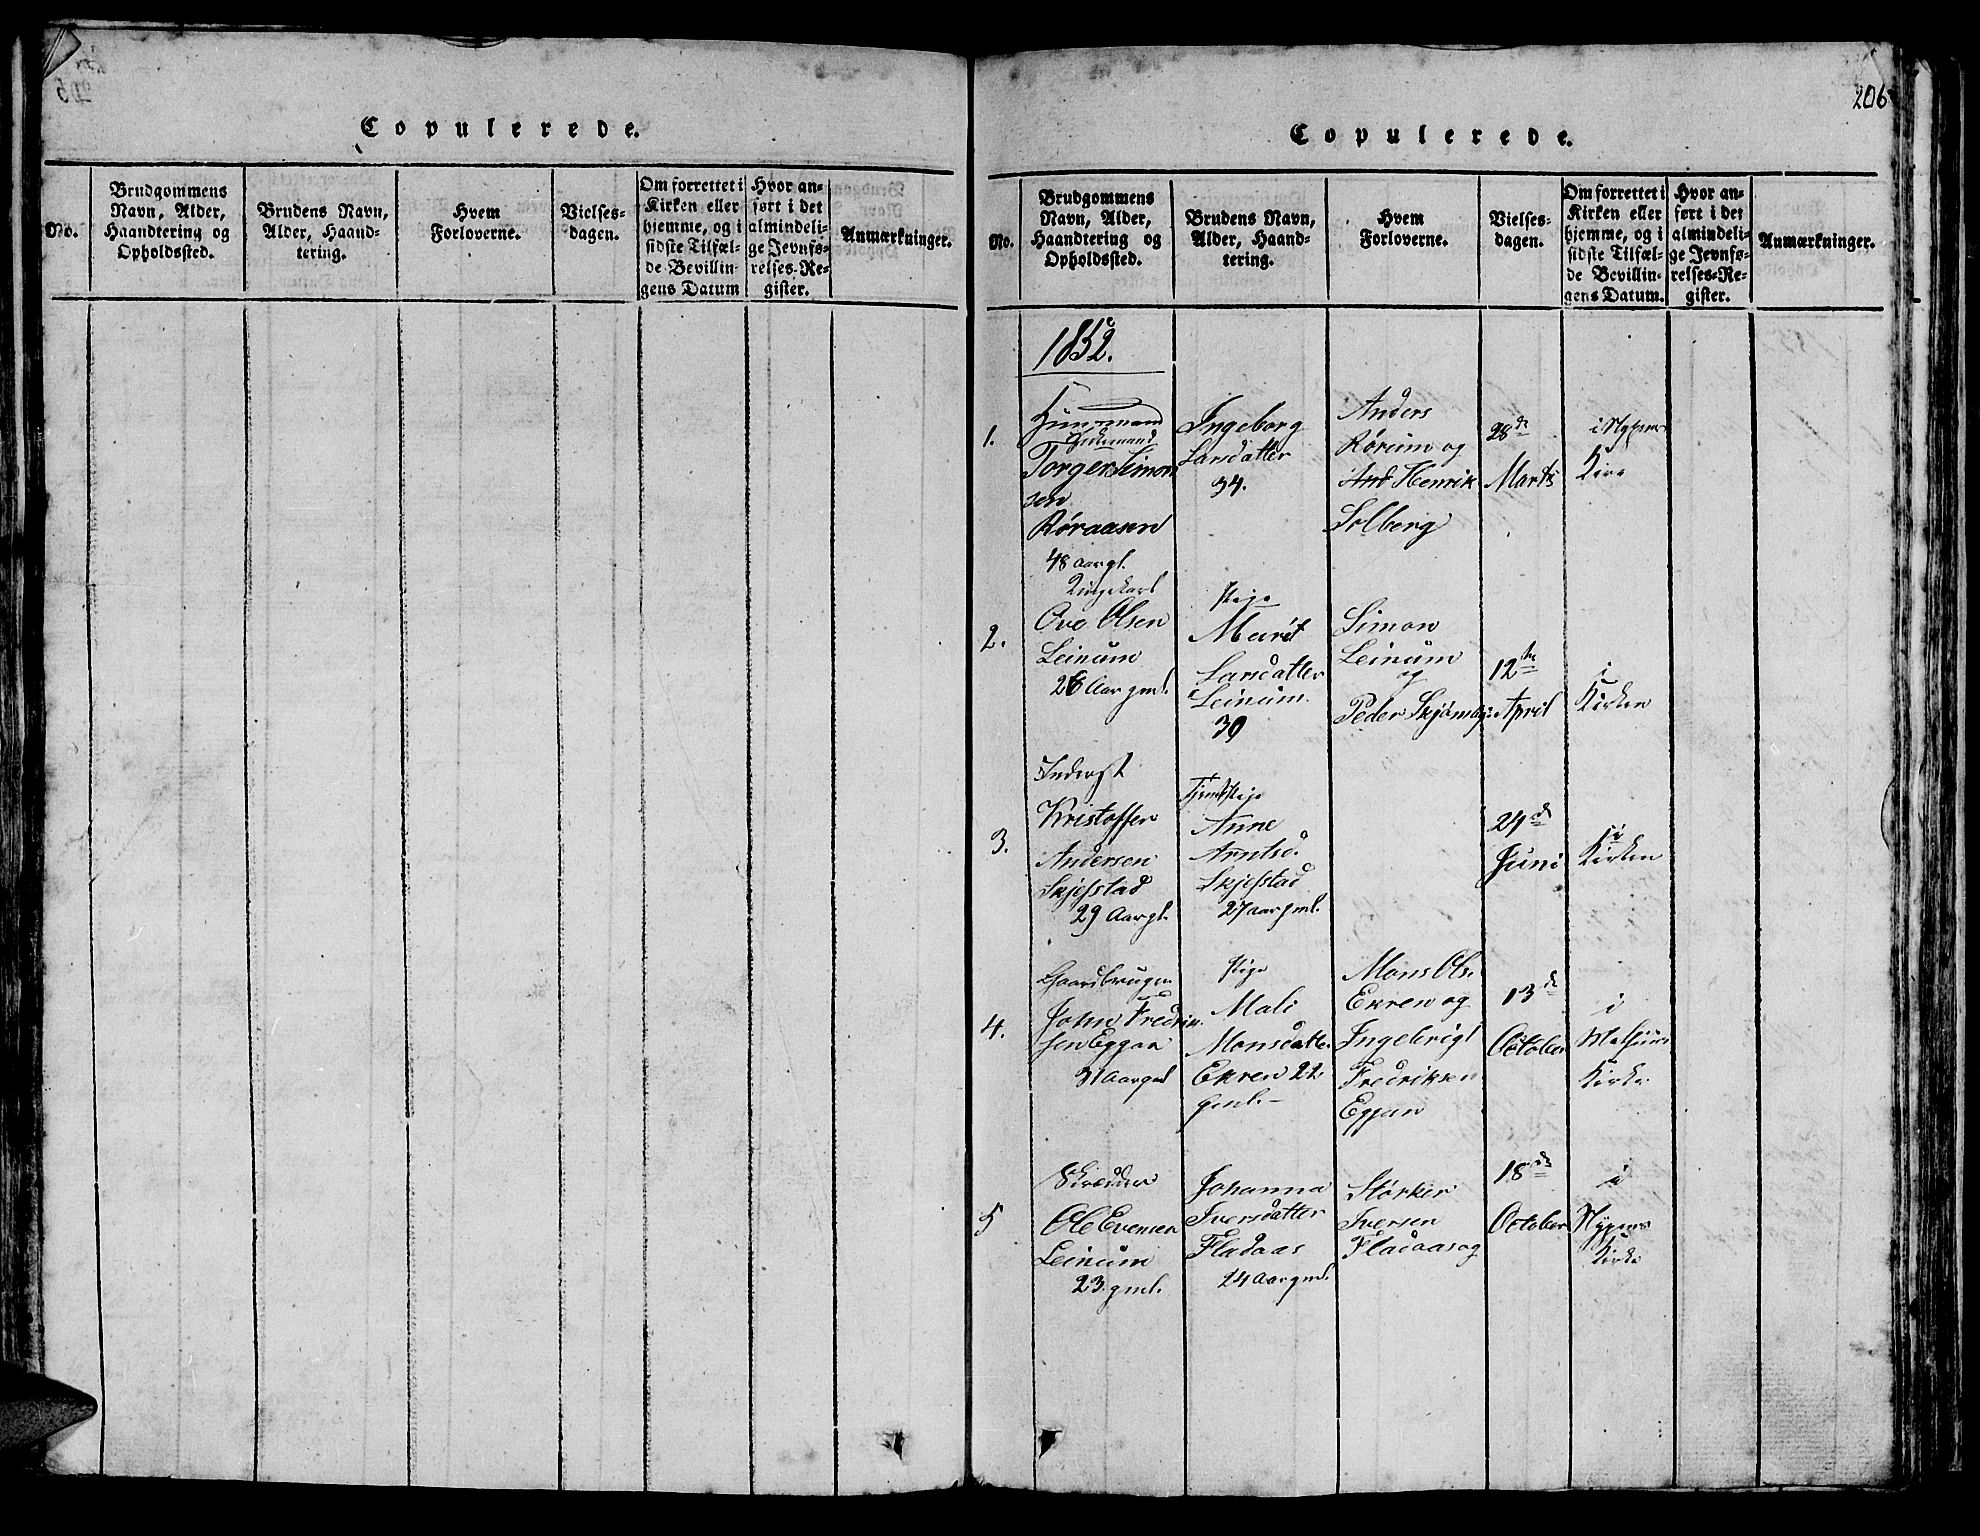 206
Copulerede.
No.
Brudgommens
Navn, Alder,
Haandtering og
Opholdssted.
Brudens Navn,
Alder, Haand-
tering.
Hvem
Forloverne.
Vielses-
dagen.
Om forrettet i
Kirken eller
hjemme, og i
sidste Tilfæl-
de Bevillin-
gens Datum
Hvor an-
ført i det
almindeli-
ge Jevnfø-
relses-Re-
gister.
Anmærkninger.
Copulerede.
No.
Brudgommens
Navn, Alder,
Haandtering og
Opholdssted.
Brudens Navn,
Alder, Haand-
tering.
Hvem
Forloverne.
Vielses-
dagen.
Om forrettet i
Kirken eller
hjemme, og i
sidste Tilfæl-
de Bevillin-
gens Datum.
Hvor an-
ført i det
almindeli-
ge Jevnfø-
relses-Re-
gister.
Anmærkninger.
1852.
1.
Huusmand
Torger Simon
sen
Røraasen
48 aar gl.
Ingeborg
Larsdatter
34.
Anders
Rørum og
And Henrik
Solberg
28de
Marts
i
Kirke
2.
Ungekarl
Ove Olsen
Leinum
26 Aar gml.
Pige
Marit
Larsdatter
Leinum.
30
Simon
Leinum
og
Peder
12te
April
i
Kirken
3.
Inderst
Kristoffer
Andersen
Skjefstad
29 Aar gl.
Tjenestpige
Anne
Arntsd.
Skjefstad
27 aar gml.
24de
Juni
i
Kirken
4.
Gaardbruger
John Fredrik-
sen Eggan
31 Aar gml
Pige
Mali
Monsdatter
Ekren 22
gml.
Mons Ols.
Ekren og
Ingebrigt
Fredriksen
Eggan
13de
October
i
Kirke
5
Skræder
Ole Evensen
Leinum
23. gml.
Johanna
Iversdatter
Fladaas
24 Aar gml.
Størker
Iversen
Fladaas og
18de
October
i
Kirke